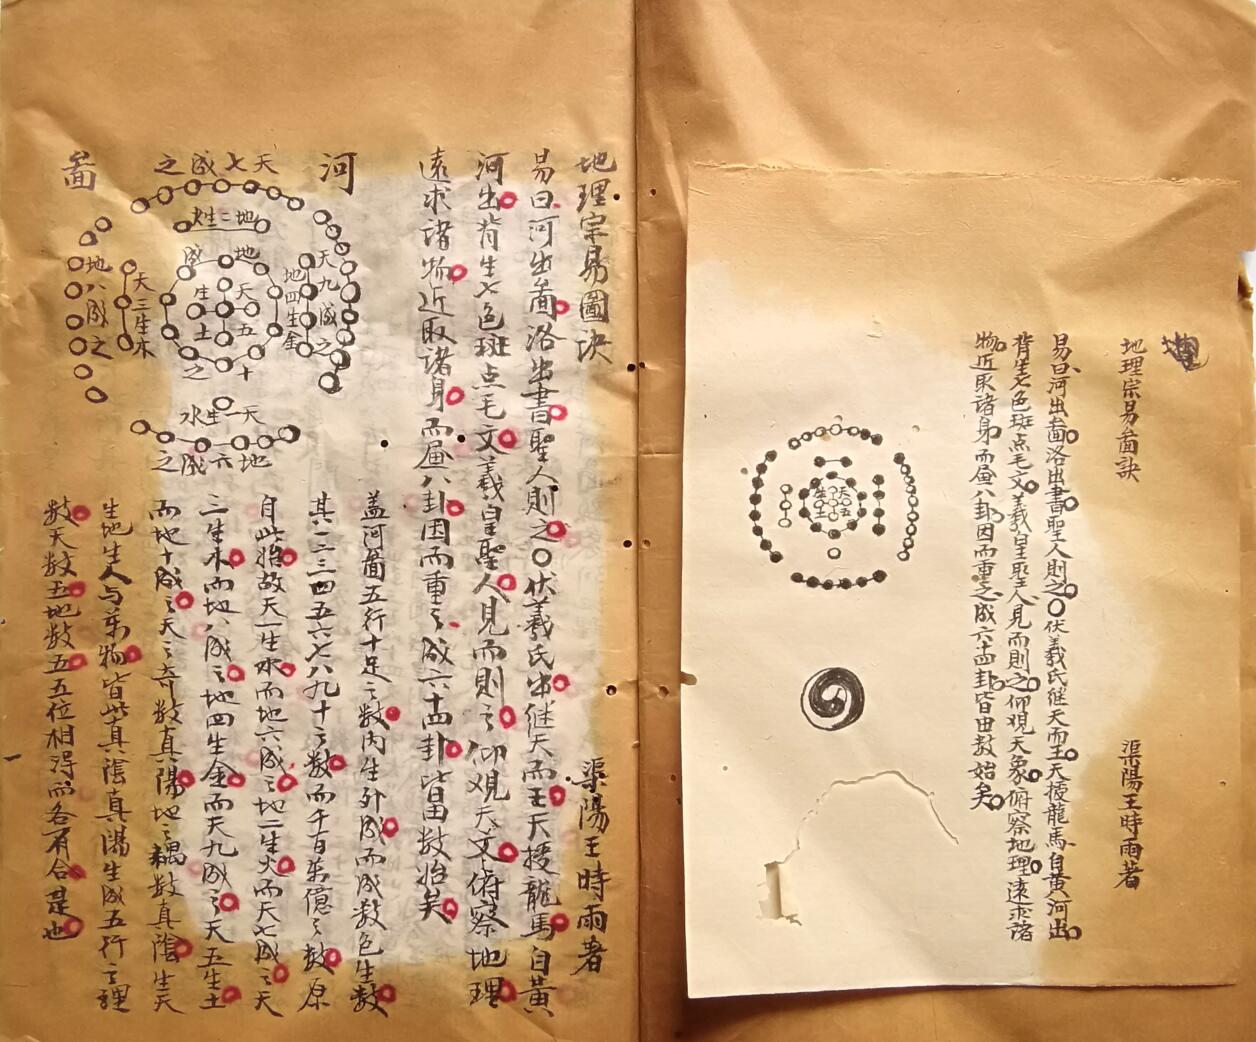 地理宗易啚訣 渠陽王時雨著
易曰河出啚洛出書聖人則之○伏羲氏継天而王天授龍馬自黄河出
背生七色斑点毛文羲皇聖人見而則之仰覌天象俯察地理遠求諸
物近取諸身而画八卦因而重之成六十四卦皆由数始矣
天五
生土
地理宗易圖訣 渠陽王時雨著
易曰河出啚洛出書聖人則之○伏羲氏出継天而王天授龍馬自黄
河出背生七色斑点毛文羲皇聖人見而則之仰观天文俯察地理
遠求諸物近取諸身而画八卦因而重之成六十四卦皆由数始矣
河
啚
天七成之
地二生火
天九成之
地四生金
天五
生土
地十成之
天三生木
地八成之
天一生水
地六成之
盖河啚五行十足之数内生外成而成数色生数
其一二三四五六七八九十之数而千百萬億之数原
自此始故天一生水而地六成之地二生火而天七成之天
三生木而地八成之地四生金而天九成之天五生土
而地十成之天之奇数真陽地之耦数真陰生天
生地生人与萬物皆此真陰真陽生成五行之理
数天数五地数五五位相得而各有合是也